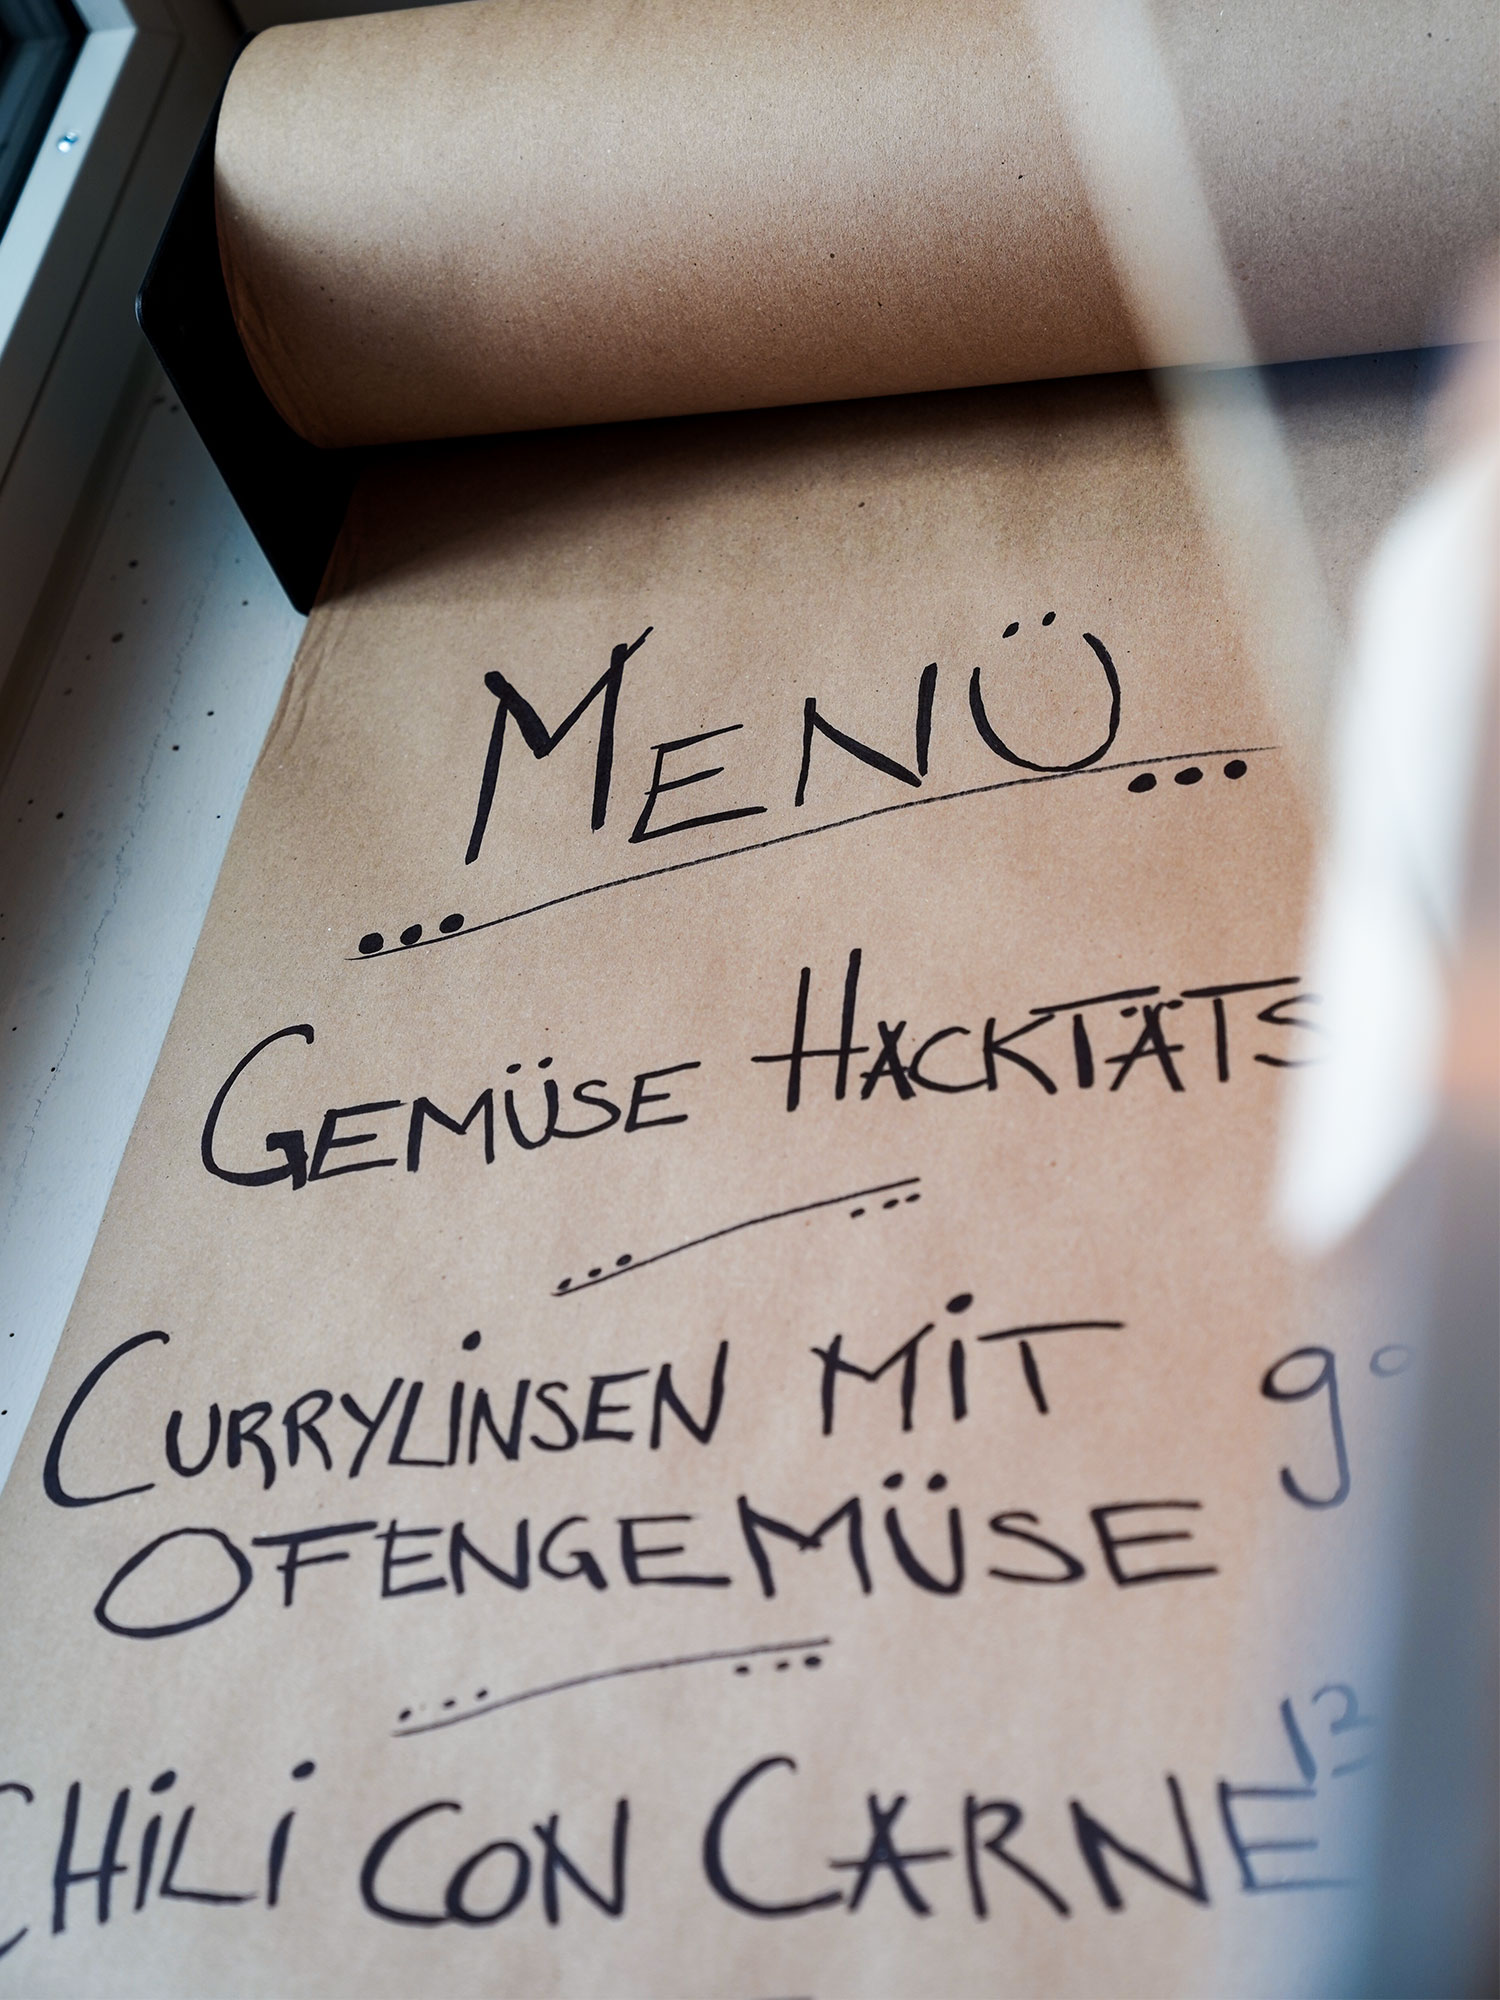 MENÜ
GEMÜSE HACKTÄTS
CURRYLINSEN MIT
OFENGEMÜSE
CHILI CON CARNE